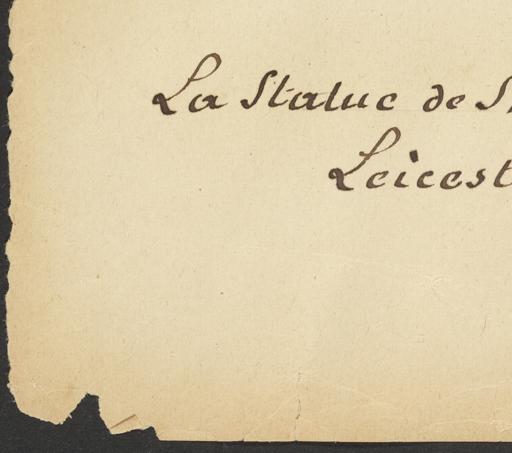 La Statue de S
Leicest